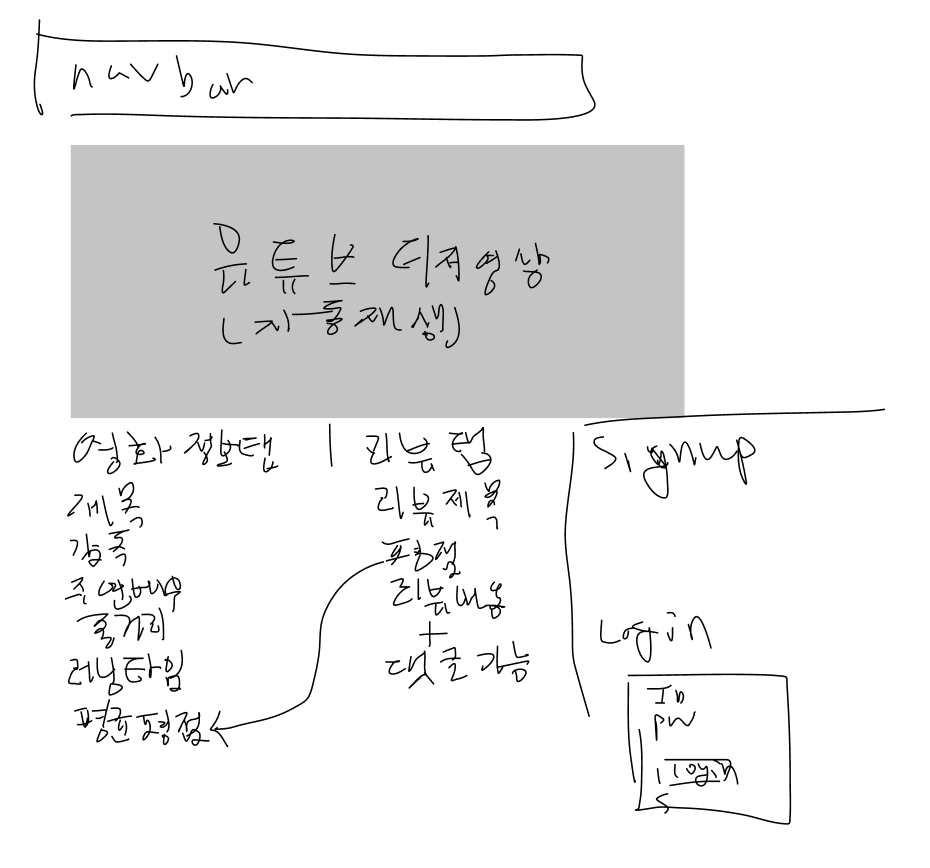 navbar
유튜브 티저영상
(자동재생)
영화 정보탭 | 리뷰 탭
제목
감독
주연배우
줄거리
러닝타임
평균평점
리뷰제목
평점
리뷰내용
+
댓글가능
Signup
Login
ID
PW
login
S